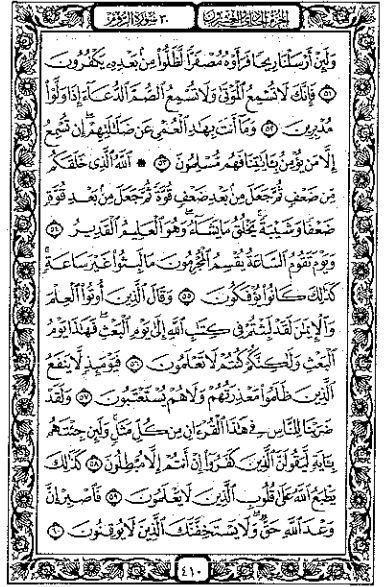 الجزء الحادي والعشرون ٣٠ سورة الروم
وَلَئِنْ أَرْسَلْنَا رِيحًا فَرَأَوْهُ مُصْفَرًّا لَّظَلُّوا۟ مِنۢ بَعْدِهِۦ يَكْفُرُونَ
٥١ فَإِنَّكَ لَا تُسْمِعُ ٱلْمَوْتَىٰ وَلَا تُسْمِعُ ٱلصُّمَّ ٱلدُّعَآءَ إِذَا وَلَّوْا۟
مُدْبِرِينَ ٥٢ وَمَآ أَنتَ بِهَٰدِ ٱلْعُمْىِ عَن ضَلَٰلَتِهِمْ ۖ إِن تُسْمِعُ
إِلَّا مَن يُؤْمِنُ بِـَٔايَٰتِنَا فَهُم مُّسْلِمُونَ ٥٣ ۞ ٱللَّهُ ٱلَّذِى خَلَقَكُم
مِّن ضَعْفٍ ثُمَّ جَعَلَ مِنۢ بَعْدِ ضَعْفٍ قُوَّةً ثُمَّ جَعَلَ مِنۢ بَعْدِ قُوَّةٍ
ضَعْفًا وَشَيْبَةً ۚ يَخْلُقُ مَا يَشَآءُ ۖ وَهُوَ ٱلْعَلِيمُ ٱلْقَدِيرُ ٥٤
وَيَوْمَ تَقُومُ ٱلسَّاعَةُ يُقْسِمُ ٱلْمُجْرِمُونَ مَا لَبِثُوا۟ غَيْرَ سَاعَةٍ ۚ
كَذَٰلِكَ كَانُوا۟ يُؤْفَكُونَ ٥٥ وَقَالَ ٱلَّذِينَ أُوتُوا۟ ٱلْعِلْمَ
وَٱلْإِيمَٰنَ لَقَدْ لَبِثْتُمْ فِى كِتَٰبِ ٱللَّهِ إِلَىٰ يَوْمِ ٱلْبَعْثِ ۖ فَهَٰذَا يَوْمُ
ٱلْبَعْثِ وَلَٰكِنَّكُمْ كُنتُمْ لَا تَعْلَمُونَ ٥٦ فَيَوْمَئِذٍ لَّا يَنفَعُ
ٱلَّذِينَ ظَلَمُوا۟ مَعْذِرَتُهُمْ وَلَا هُمْ يُسْتَعْتَبُونَ ٥٧ وَلَقَدْ
ضَرَبْنَا لِلنَّاسِ فِى هَٰذَا ٱلْقُرْءَانِ مِن كُلِّ مَثَلٍ ۚ وَلَئِن جِئْتَهُم
بِـَٔايَةٍ لَّيَقُولَنَّ ٱلَّذِينَ كَفَرُوٓا۟ إِنْ أَنتُمْ إِلَّا مُبْطِلُونَ ٥٨ كَذَٰلِكَ
يَطْبَعُ ٱللَّهُ عَلَىٰ قُلُوبِ ٱلَّذِينَ لَا يَعْلَمُونَ ٥٩ فَٱصْبِرْ إِنَّ
وَعْدَ ٱللَّهِ حَقٌّ ۖ وَلَا يَسْتَخِفَّنَّكَ ٱلَّذِينَ لَا يُوقِنُونَ ٦٠
٤١٠